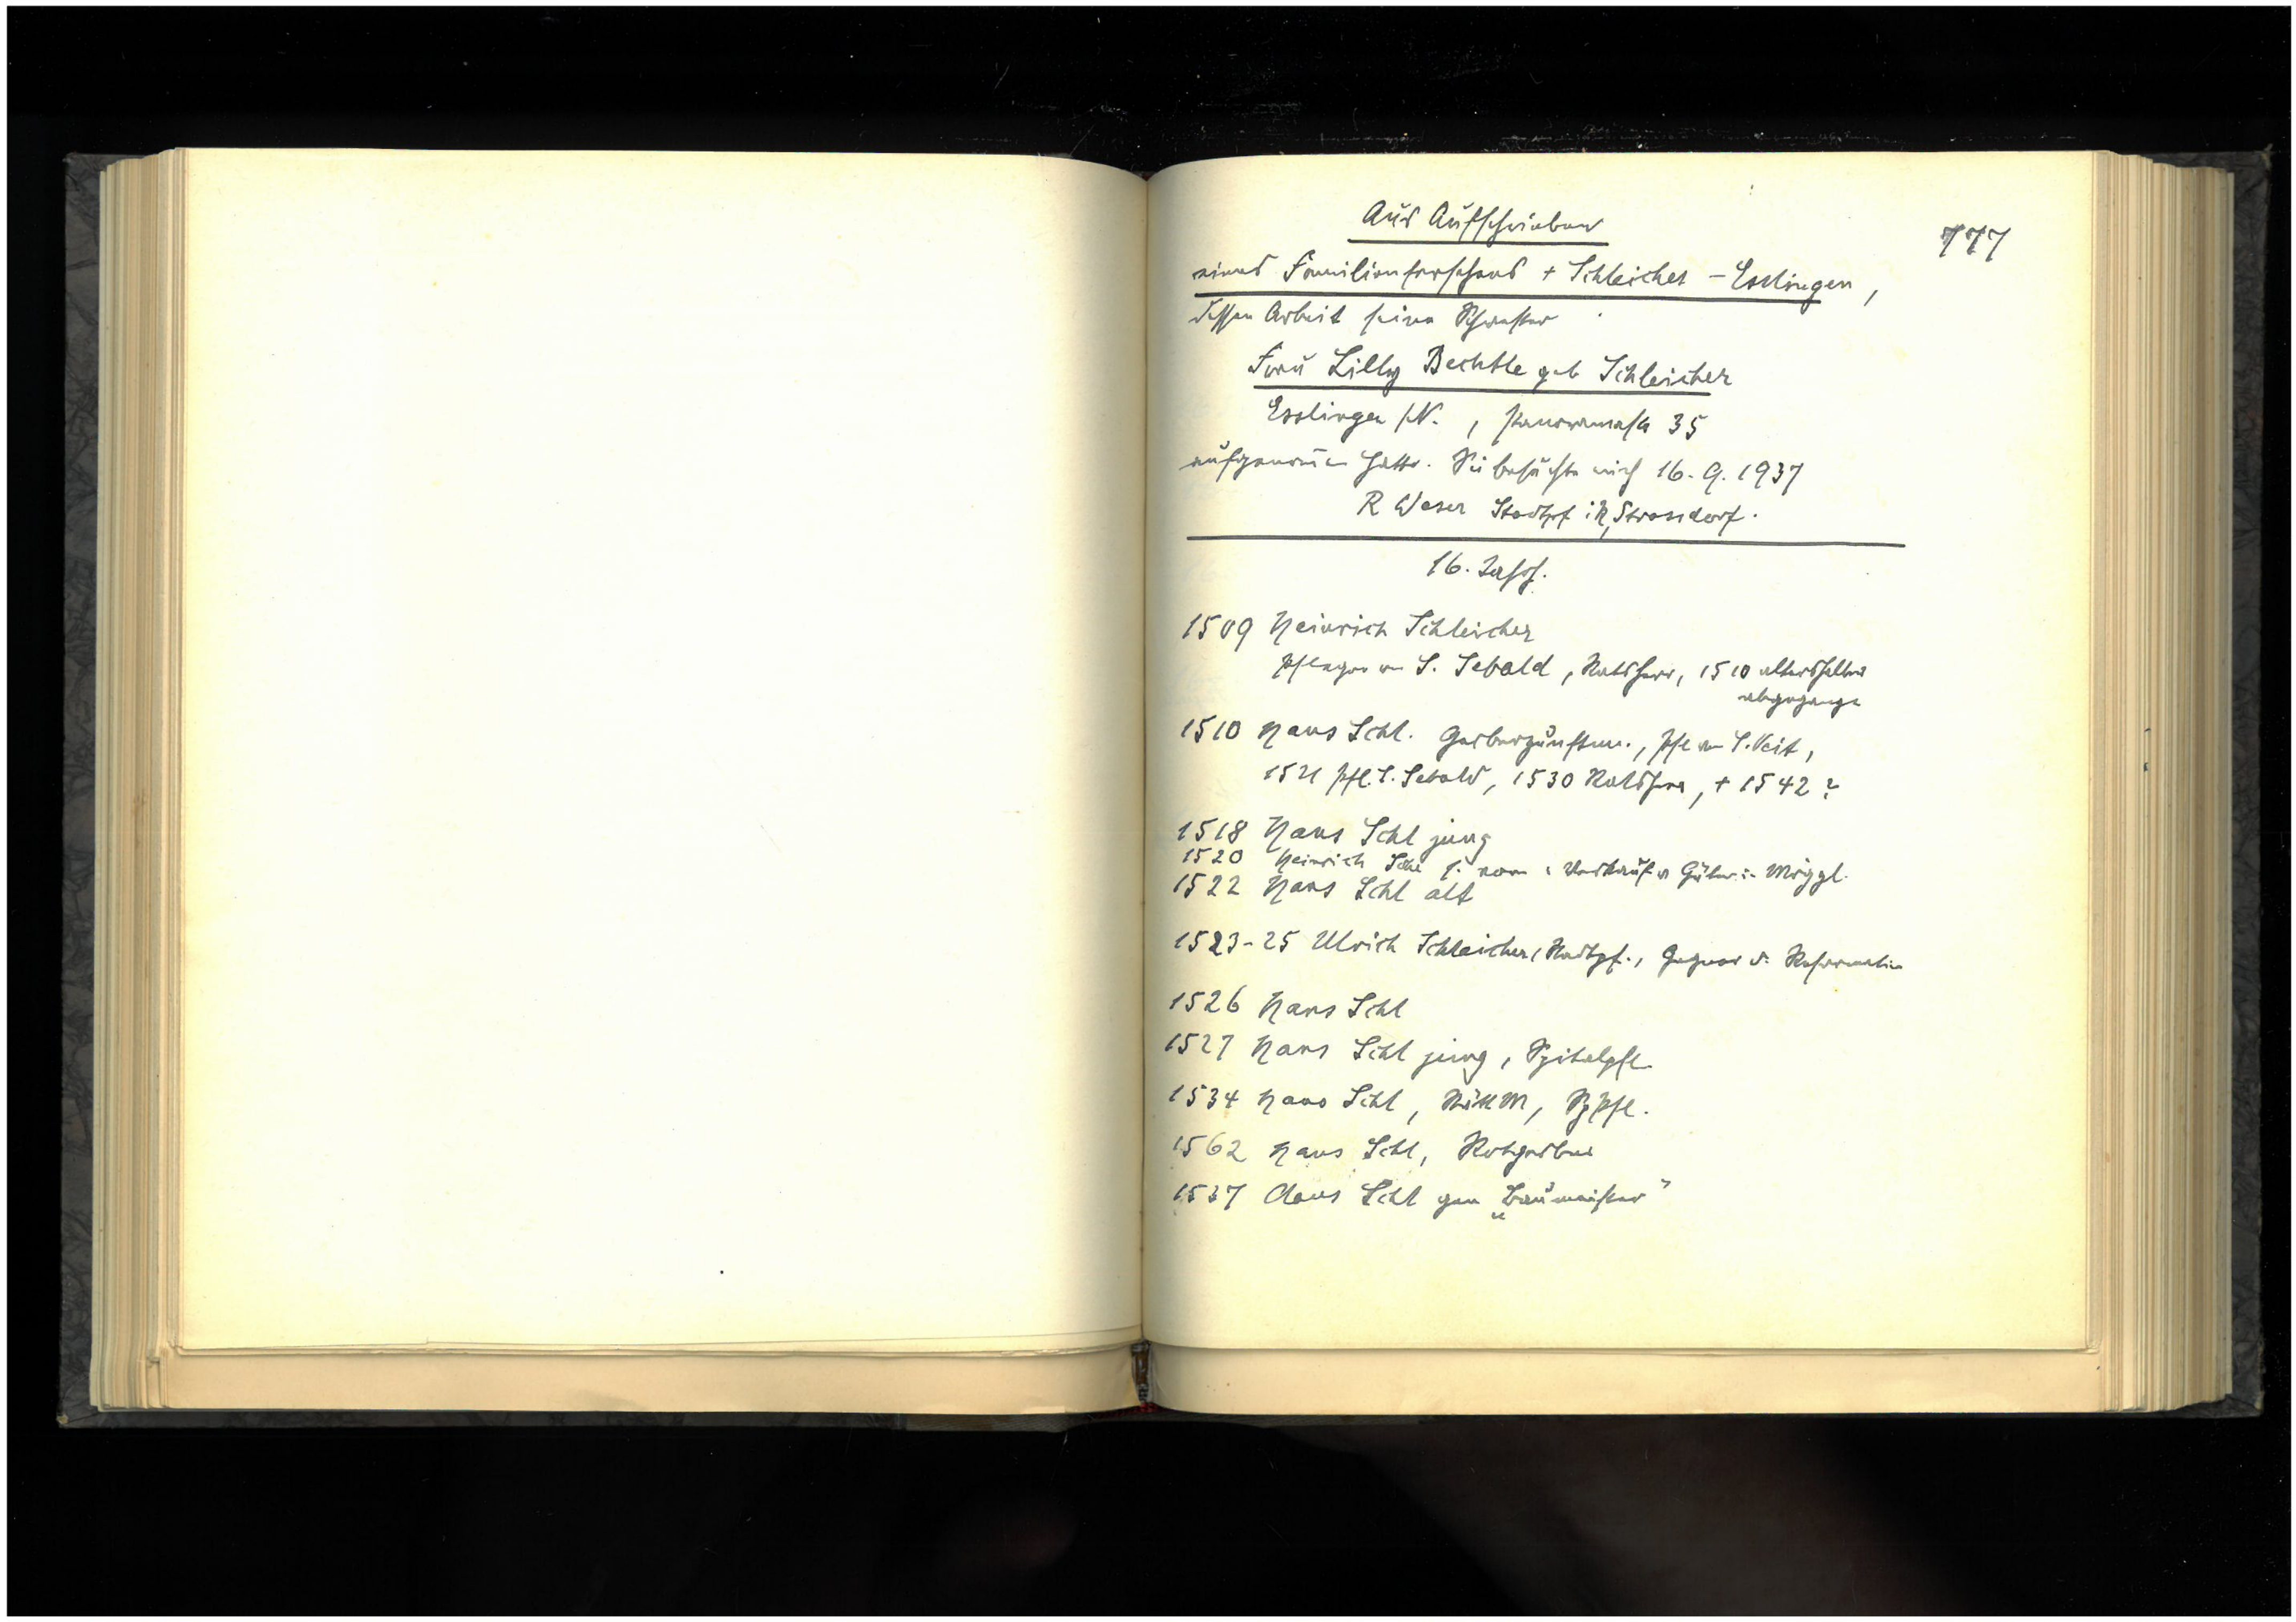 777
Aus Aufschrieben
eines Familienforschers + Schleicher - Esslingen,
dessen Arbeit seine Schwester
Frau Lilly Bechtle geb Schleicher
Esslingen /N., Panoramastr 35
aufgenom̄en hatte. Sie besuchte mich 16. 9. 1937
R Weser Stadtpf i R, Strassdorf.
16. Jahrh.
1509 Heinrich Schleicher
Pfleger von S. Sebald, Ratsherr, 1510 altershalber
abgegangen
1510 Hans Schl. Gerberzunftm., Pfl von S. Veit,
1521 Pfl. S. Sebald, 1530 Ratsherr, + 1542 ?
1518 Hans Schl jung
1520 Heinrich Verkauf v Güter in Möggl.
1522 Hans Schl alt
1523-25 Ulrich Schleicher, Stadtpf., Gegner d. Reformation
1526 Hans Schl
1527 Hans Schl jung, Spitalpfl.
1534 Hans Schl, Spfl.
1562 Hans Schl, Rotgerber
1537 Claus Schl gen „Baumeister"